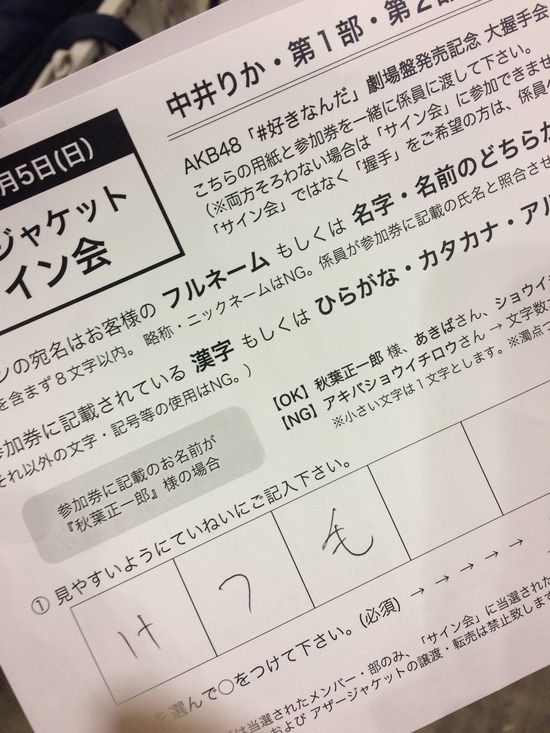 中井りか・第1部・第2部
AKB48「#好きなんだ」劇場盤発売記念 大握手会
こちらの用紙と参加券を一緒に係員に渡して下さい。
(※両方そろわない場合は「サイン会」に参加できませ
「サイン会」ではなく「握手」をご希望の方は、係員
月5日(日)
ジャケット
イン会
ンの宛名はお客様の フルネーム もしくは 名字・名前のどちらか
を含まず8文字以内。 略称・ニックネームはNG。係員が参加券に記載の氏名と照合させ
参加券に記載されている 漢字 もしくは ひらがな・カタカナ・アル
それ以外の文字・記号等の使用はNG。)
【OK】秋葉正一郎 様、あきばさん、ショウイ
【NG】アキバショウイチロウさん → 文字数
※小さい文字は1文字とします。※濁点
参加券に記載のお名前が
『秋葉正一郎』様の場合
① 見やすいようにていねいにご記入下さい。
け つ も
を選んで○をつけて下さい。(必須) → → → → → →
は当選されたメンバー・部のみ、「サイン会」に当選された
および アザージャケットの譲渡・転売は禁止致しま